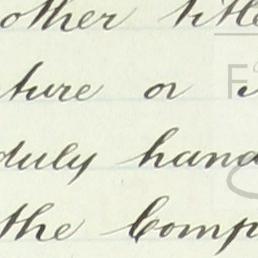 other title
ture or
duly hand
the Comp